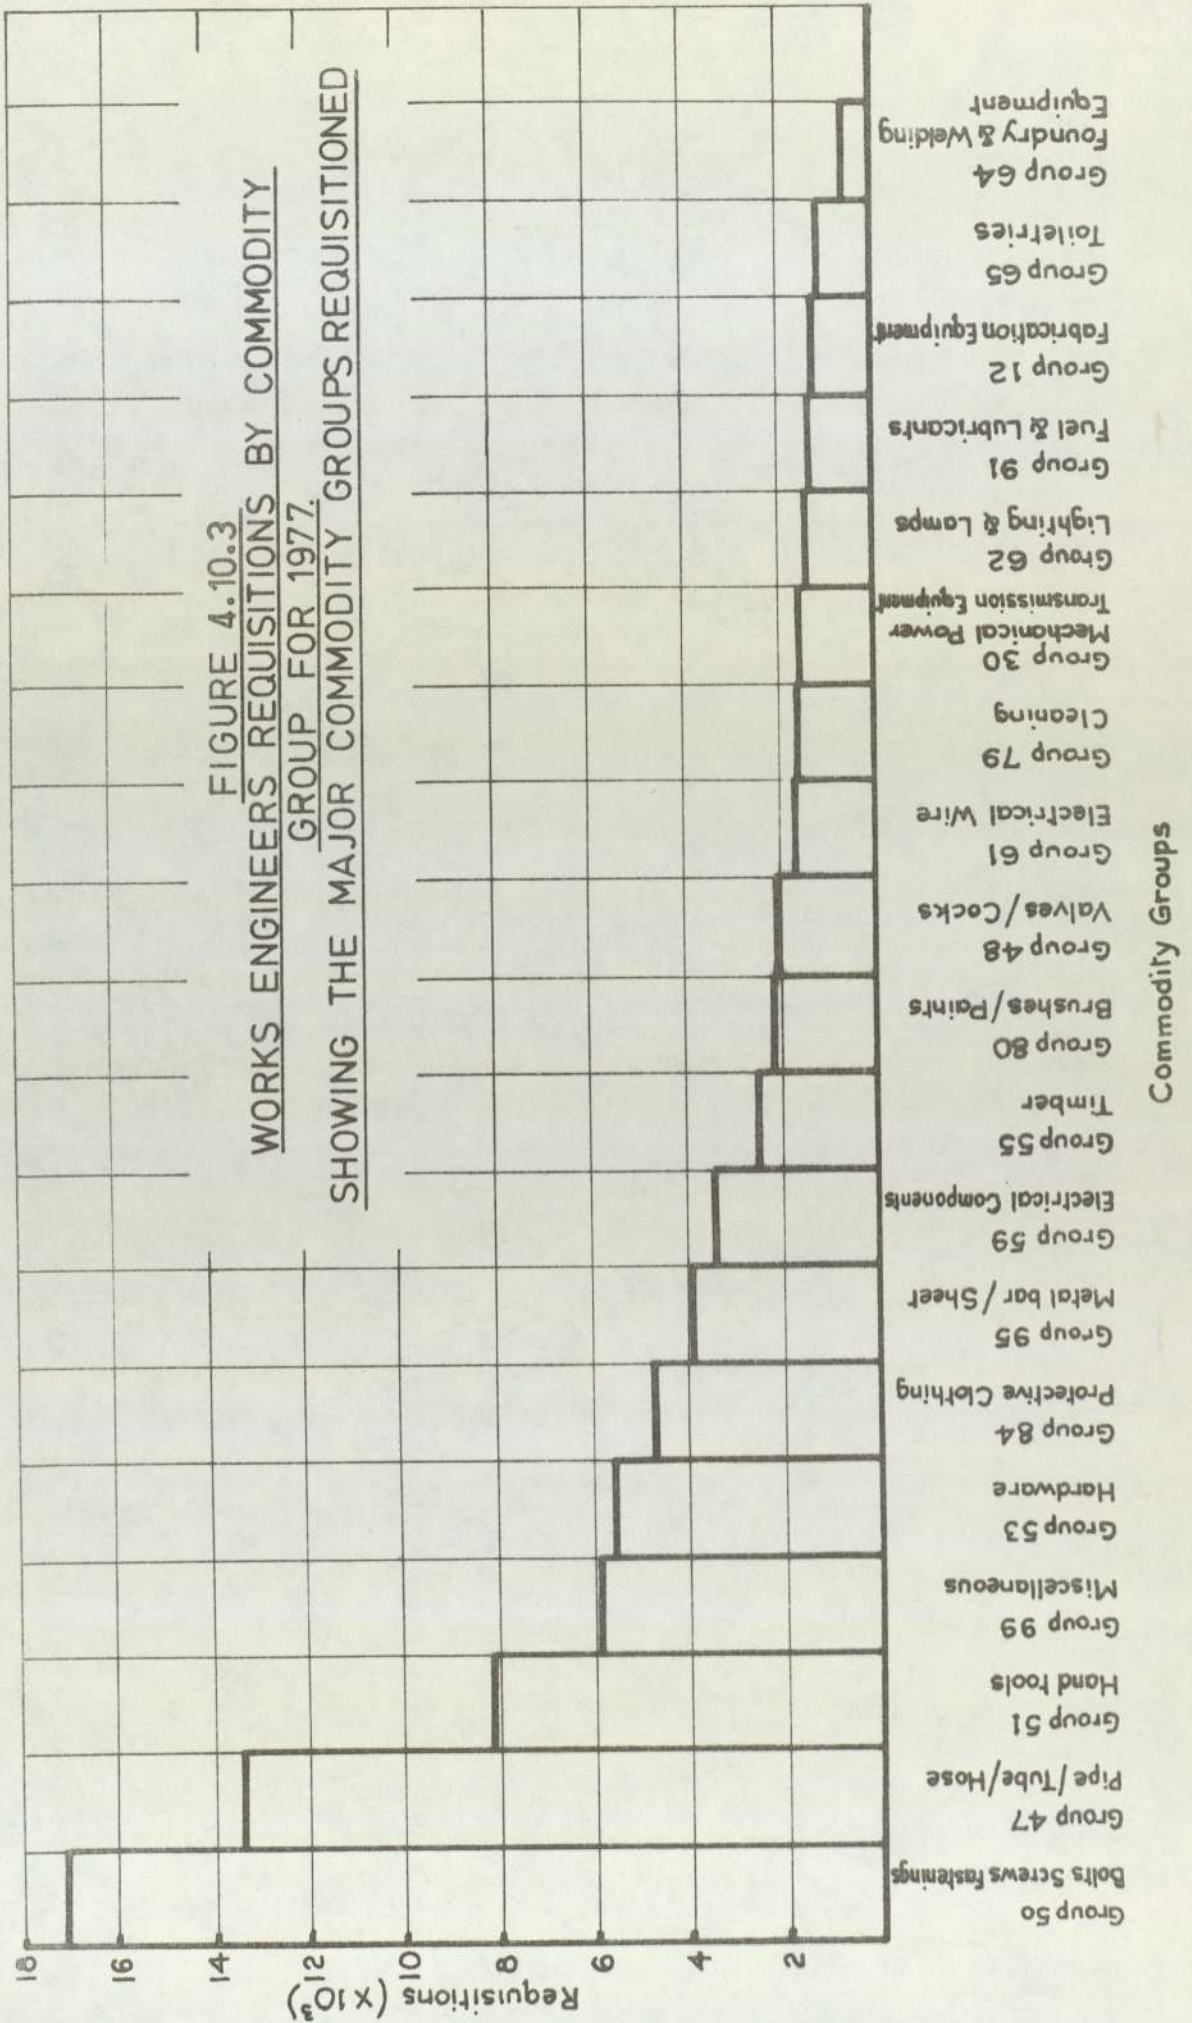 FIGURE 4.10.3
WORKS ENGINEERS REQUISITIONS BY COMMODITY
GROUP FOR 1977.
SHOWING THE MAJOR COMMODITY GROUPS REQUISITIONED
Requisitions (×10³)
18
16
14
12
10
8
6
4
2
Group 50
Bolts Screws Fastenings
Group 47
Pipe/Tube/Hose
Group 51
Hand tools
Group 99
Miscellaneous
Group 53
Hardware
Group 84
Protective Clothing
Group 95
Metal bar/Sheet
Group 59
Electrical Components
Group 55
Timber
Group 80
Brushes/Paints
Group 48
Valves/Cocks
Group 61
Electrical Wire
Group 79
Cleaning
Group 30
Mechanical Power
Transmission Equipment
Group 62
Lighting & Lamps
Group 91
Fuel & Lubricants
Group 12
Fabrication Equipment
Group 65
Toiletries
Group 64
Foundry & Welding
Equipment
Commodity Groups